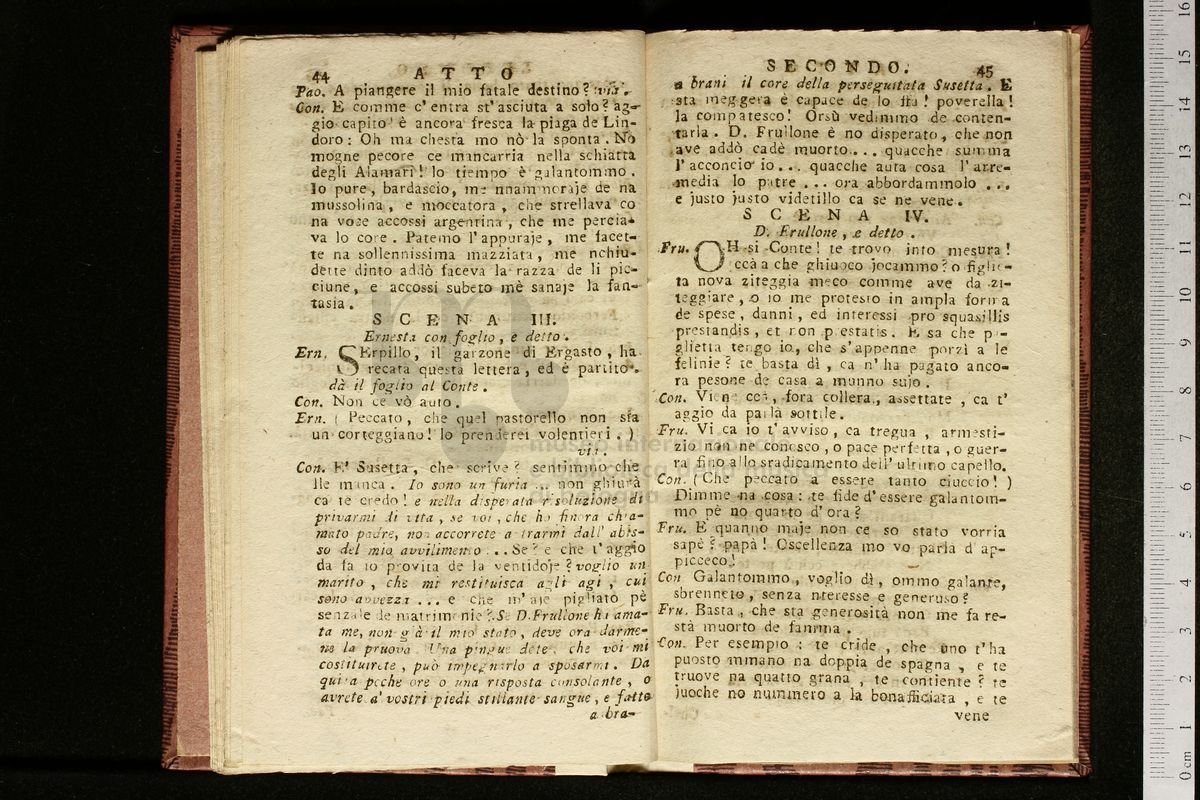 44 ATTO
Pao. A piangere il mio fatale destino? via.
Con. E comme c' entra st' asciuta a solo? ag-
gio capito! è ancora fresca la piaga de Lin-
doro: Oh ma chesta mo nò la sponta. No
mogne pecore ce mancarria nella schiatta
degli Alamari! lo tiempo è galantommo.
Io pure, bardascio, me nnammoraje de na
mussolina, e moccatora, che strellava co
na voce accossì argentina, che me percia-
va lo core. Patemo l'appuraje, me facet-
te na sollennissima mazziata, me nchiu-
dette dinto addò faceva la razza de li pic-
ciune, e accossì subeto mè sanaje la fan-
tasia.
SCENA III.
Ernesta con foglio, e detto.
Ern. SErpillo, il garzone di Ergasto, ha
recata questa lettera, ed è partito.
dà il foglio al Conte.
Con. Non ce vò auto.
Ern. ( Peccato, che quel pastorello non sia
un corteggiano! lo prenderei volentieri. )
via.
Con. E' Susetta, che scrive? sentimmo che
lle manca. Io sono un furia ... non ghiurà
ca te credo! e nella disperata risoluzione di
privarmi di vita, se voi, che ho finora chia-
mato padre, non accorrete a trarmi dall' abis-
so del mio avvilimento ... Se? e che t'aggio
da fa io provita de la ventidoje? voglio un
marito, che mi restituisca agli agi, cui
sono avvezza ... e che m'aje pigliato pè
senzale de matrimonie? Se D. Frullone ha ama-
ta me, non già il mio stato, deve ora darme-
ne la pruova. Una pingue dote, che voi mi
costituirete, può impegnarlo a sposarmi. Da
qui a poche ore o una risposta consolante, o
avrete a' vostri piedi stillante sangue, e fatto
a bra-
SECONDO. 45
a brani il core della perseguitata Susetta. E
sta meggera è capace de lo fra! poverella!
la compatesco! Orsù vedimmo de conten-
tarla. D. Frullone è no disperato, che non
ave addò cadè muorto... quacche summa
l'acconcio io... quacche auta cosa l'arre-
media lo patre ... ora abbordammolo ...
e justo justo videtillo ca se ne vene.
SCENA IV.
D. Frullone, e detto.
Fru. OH si Conte! te trovo into mesura!
ccà a che ghiuoco jocammo? o figlie-
ta nova ziteggia meco comme ave da zi-
teggiare, o io me protesto in ampla forma
de spese, danni, ed interessi pro squasillis
prestandis, et non prestatis. E sa che pa-
glietta tengo io, che s'appenne porzì a le
felinie? te basta dì, ca n'ha pagato anco-
ra pesone de casa a munno sujo.
Con. Viene ccà, fora collera, assettate, ca t'
aggio da parlà sottile.
Fru. Vi ca io t'avviso, ca tregua, armesti-
zio non ne conosco, o pace perfetta, o guer-
ra fino allo sradicamento dell' ultimo capello.
Con. ( Che peccato a essere tanto ciuccio! )
Dimme na cosa: te fide d'essere galantom-
mo pè no quarto d'ora?
Fru. E quanno maje non ce so stato vorria
sapè? papà! Oscellenza mo vo parlà d'ap-
picceco!
Con. Galantommo, voglio dì, ommo galante,
sbrenneto, senza nteresse e generuso?
Fru. Basta, che sta generosità non me fa re-
stà muorto de famma.
Con. Per esempio: te cride, che uno t'ha
puosto mmano na doppia de spagna, e te
truove na quatto grana, te contiente? te
juoche no nummero a la bonafficiata, e te
vene
museo internazionale
biblioteca della musica
0 cm 1 2 3 4 5 6 7 8 9 10 11 12 13 14 15 16